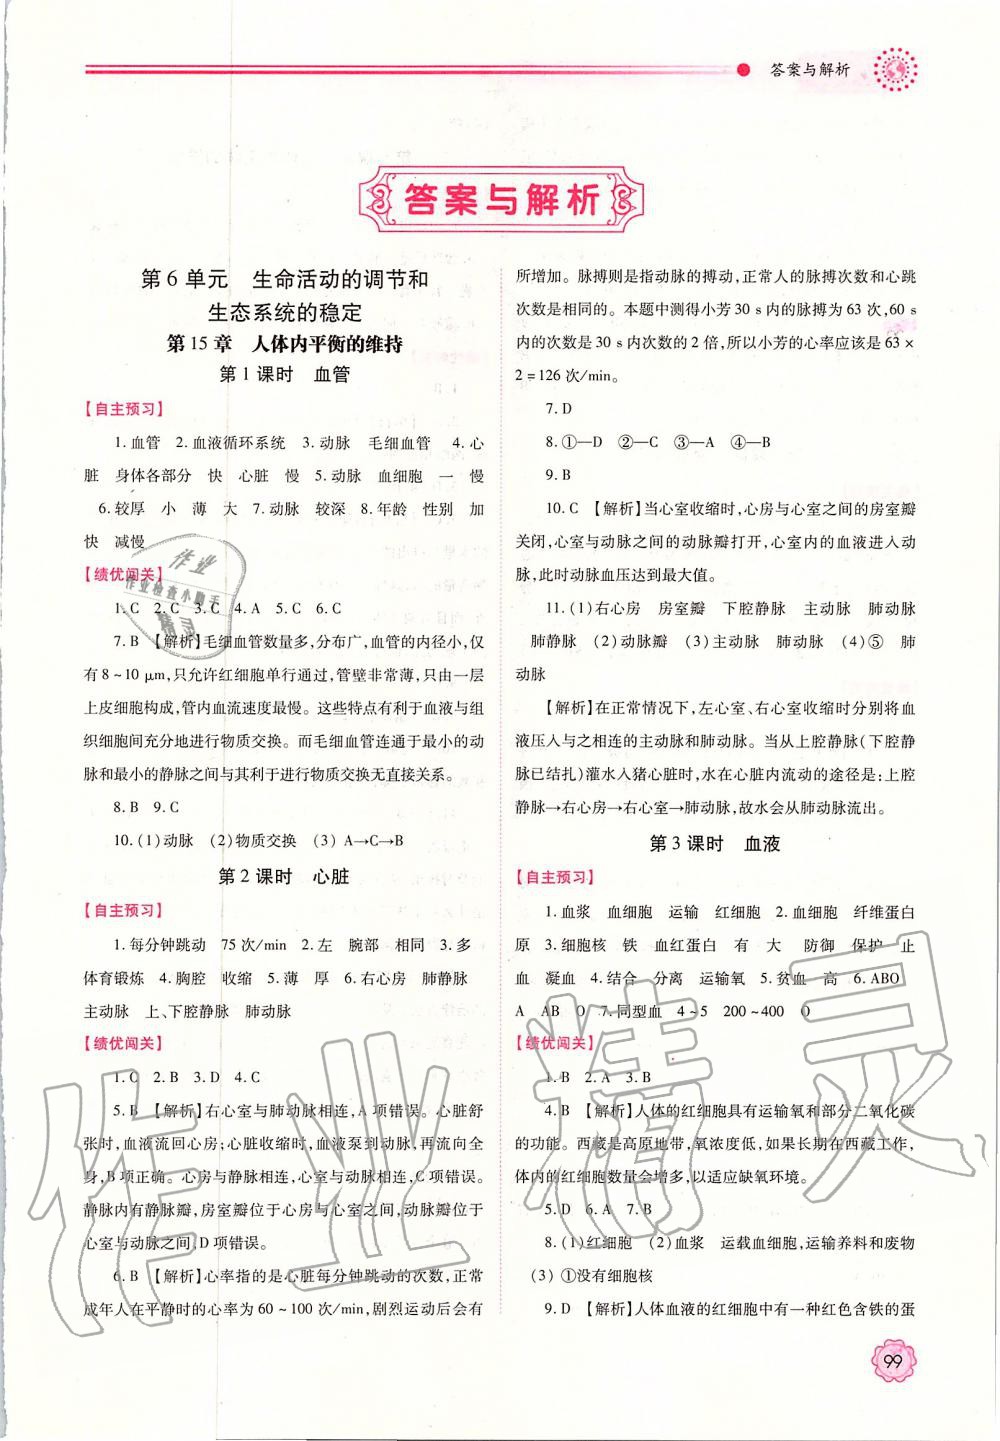 答案与解析
答案与解析
第 6 单元　生命活动的调节和
生态系统的稳定
第 15 章　人体内平衡的维持
第 1 课时　血管
【自主预习】
1.血管　2.血液循环系统　3.动脉　毛细血管　4.心
脏　身体各部分　快　心脏　慢　5.动脉　血细胞　一　慢
6.较厚　小　薄　大　7.动脉　较深　8.年龄　性别　加
快　减慢
【绩优闯关】
1.C　2.C　3.C　4.A　5.C　6.C
7.B　【解析】毛细血管数量多,分布广,血管的内径小,仅
有 8～10 μm,只允许红细胞单行通过,管壁非常薄,只由一层
上皮细胞构成,管内血流速度最慢。这些特点有利于血液与组
织细胞间充分地进行物质交换。而毛细血管连通于最小的动
脉和最小的静脉之间与其利于进行物质交换无直接关系。
8.B　9.C
10.(1)动脉　(2)物质交换　(3) A→C→B
第 2 课时　心脏
【自主预习】
1.每分钟跳动　75 次/min　2.左　腕部　相同　3.多
体育锻炼　4.胸腔　收缩　5.薄　厚　6.右心房　肺静脉
主动脉　上、下腔静脉　肺动脉
【绩优闯关】
1.C　2.B　3.D　4.C
5.B　【解析】右心室与肺动脉相连,A 项错误。心脏舒
张时,血液流回心房;心脏收缩时,血液泵到动脉,再流向全
身,B 项正确。心房与静脉相连,心室与动脉相连,C 项错误。
静脉内有静脉瓣,房室瓣位于心房与心室之间,动脉瓣位于
心室与动脉之间,D 项错误。
6.B　【解析】心率指的是心脏每分钟跳动的次数,正常
成年人在平静时的心率为 60～100 次/min,剧烈运动后会有
所增加。脉搏则是指动脉的搏动,正常人的脉搏次数和心跳
次数是相同的。本题中测得小芳 30 s 内的脉搏为 63 次,60 s
内的次数是 30 s 内次数的 2 倍,所以小芳的心率应该是 63 ×
2 = 126 次/min。
7.D
8.①—D　②—C　③—A　④—B
9.B
10.C　【解析】当心室收缩时,心房与心室之间的房室瓣
关闭,心室与动脉之间的动脉瓣打开,心室内的血液进入动
脉,此时动脉血压达到最大值。
11.(1)右心房　房室瓣　下腔静脉　主动脉　肺动脉
肺静脉　(2)动脉瓣　(3)主动脉　肺动脉　(4)⑤　肺
动脉
【解析】在正常情况下,左心室、右心室收缩时分别将血
液压入与之相连的主动脉和肺动脉。当从上腔静脉(下腔静
脉已结扎)灌水入猪心脏时,水在心脏内流动的途径是:上腔
静脉→右心房→右心室→肺动脉,故水会从肺动脉流出。
第 3 课时　血液
【自主预习】
1.血浆　血细胞　运输　红细胞　2.血细胞　纤维蛋白
原　3.细胞核　铁　血红蛋白　有　大　防御　保护　止
血　凝血　4.结合　分离　运输氧　5.贫血　高　6.ABO
A　AB　O　7.同型血　4～5　200～400　O
【绩优闯关】
1.B　2.A　3.B
4.B　【解析】人体的红细胞具有运输氧和部分二氧化碳
的功能。西藏是高原地带,氧浓度低,如果长期在西藏工作,
体内的红细胞数量会增多,以适应缺氧环境。
5.D　6.A　7.B
8.(1)红细胞　(2)血浆　运载血细胞,运输养料和废物
(3) ①没有细胞核
9.D　【解析】人体血液的红细胞中有一种红色含铁的蛋
99
作业
作业检查小助手
精灵
作业精灵